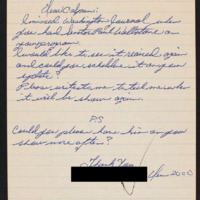 Dear C-Span:
I missed Washington Journal when
you had Senator Paul Wellstone on
your program.
I would like to see it reaired again
and could you schedule it on your
update?
Please write to me to tell me when
it will be shown again.
P.S
Could you please have him on your
show more often?
Thank You
Jan 2000